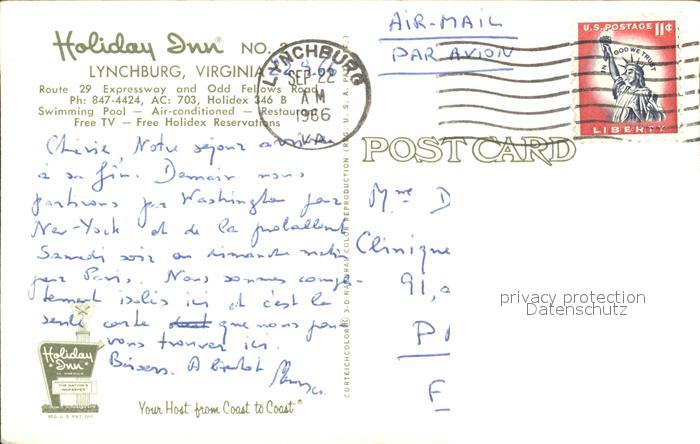 AIR-MAIL
PAR AVION
U.S. POSTAGE 11¢
IN GOD WE TRUST
LIBERTY
Holiday Inn® NO.
LYNCHBURG, VIRGINIA
Route 29 Expressway and Odd Fellows Road
Ph: 847-4424, AC: 703, Holidex 346 B
Swimming Pool — Air-conditioned — Restaurant
Free TV — Free Holidex Reservations
LYNCHBURG
SEP 22
AM
1966
VA.
POST CARD
Chérie Notre séjour arrive
à sa fin. Demain nous
partirons par Washington pour
New-York et de là probablement
Samedi soir ou dimanche matin
pour Paris. Nous sommes complè-
tement isolés ici et c'est la
seule carte que nous pou-
vons trouver ici.
Baisers. A bientôt
Mme D
Clinique
91,
P
F
privacy protection
Datenschutz
CURTEICHCOLOR® 3-D NATURAL COLOR REPRODUCTION (REG. U.S.A. PAT. OFF.)
Holiday Inn
OF AMERICA
THE NATION'S INNKEEPER
REG. U.S. PAT. OFF.
Your Host from Coast to Coast®